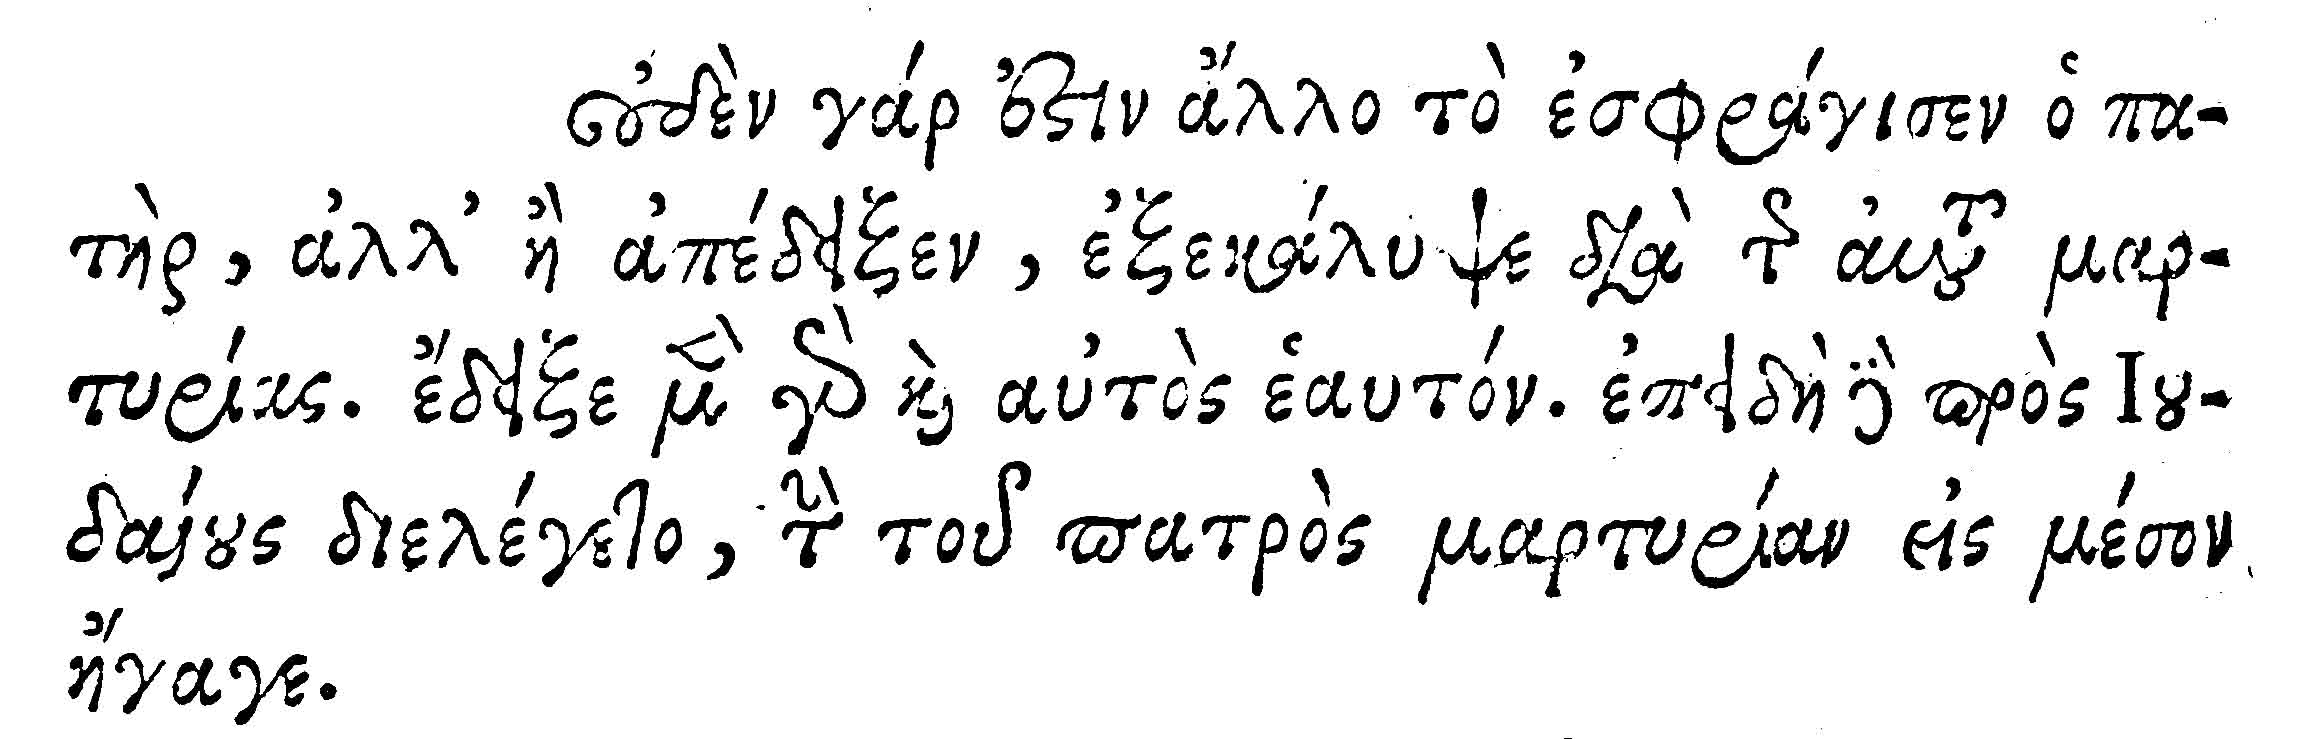 οὐδὲν γάρ ὅξιν ἄλλο τὸ ἐσφράγισεν ὁ πα-
τὴρ, ἀλλ’ ἢ ἀπέδειξεν, ἐξεκάλυψε διὰ τ ἀυτοῦ μαρ-
τυρίας. ἔδειξε μὲν γὰρ καὶ αὐτὸς ἑαυτόν. ἐπειδὴ δὲ πρὸς Ιου-
δαίους διελέγετο, τὴν τοῦ πατρὸς μαρτυρίαν εἰς μέσον
ἤγαγε.